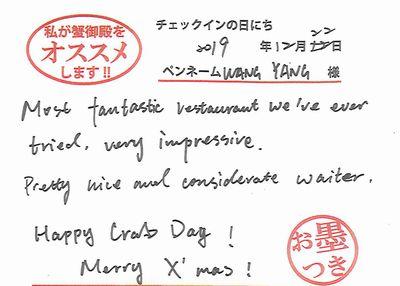 私が蟹御殿を
オススメ
します!!
チェックインの日にち
2019 年12月22日
ペンネーム WANG YANG 様
Most fantastic restaurant we've ever
tried, very impressive.
Pretty nice and considerate waiter.
Happy Crab Day!
Merry X'mas!
お墨
つき